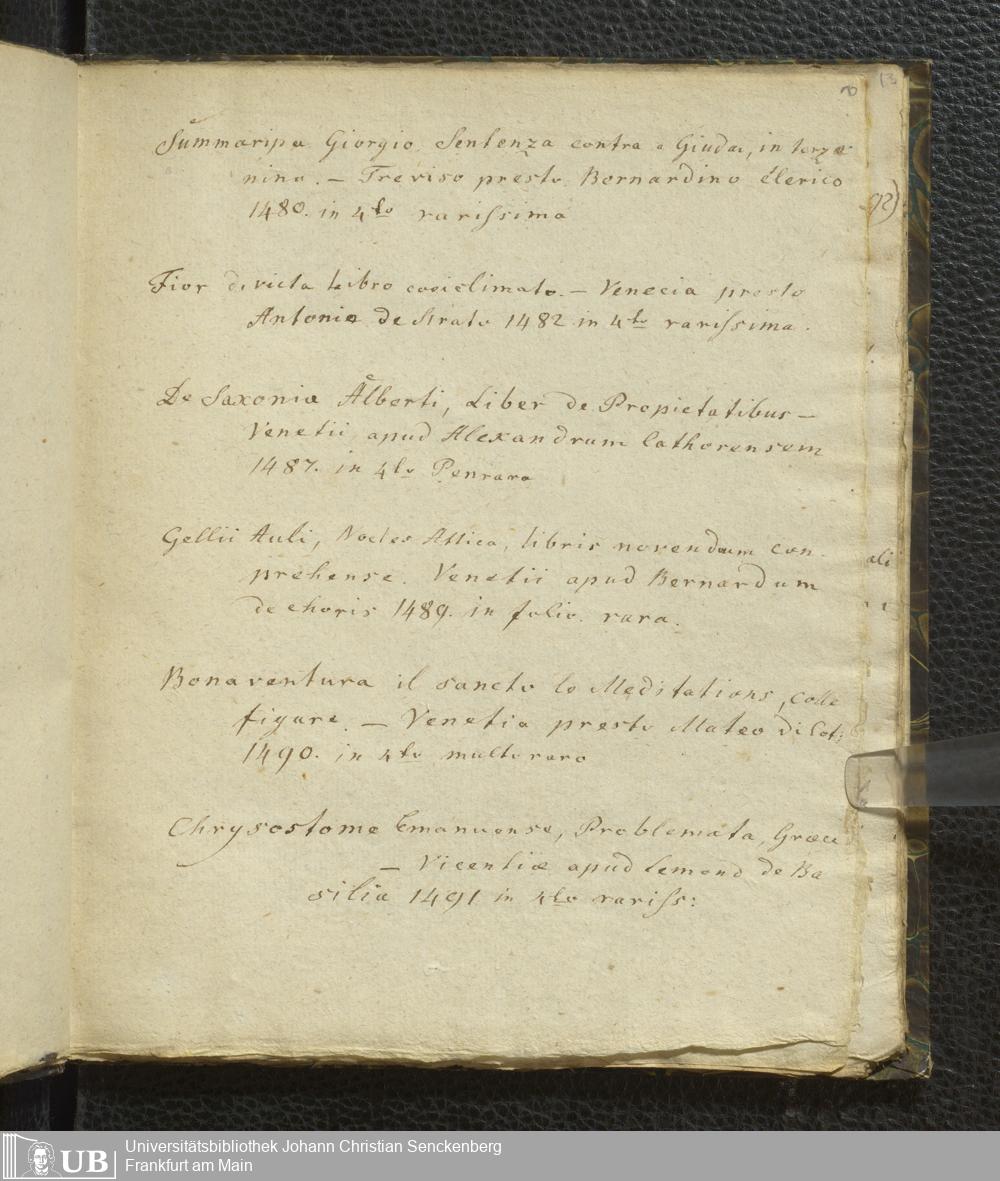 Summaripa Giorgio Sentenza contra a Giudæ, in terze
nina. – Treviso presto Bernardino Clerico
1480. in 4to rarissima
Fior di victa Libro cosiclimato. – Venecia presto
Antonio de Strato 1482 in 4to rarissima.
De Saxonia Alberti, Liber de Propietatibus –
Venetii apud Alexandrum Cathorensem
1487. in 4to Penrara
Gellii Auli, Noctes Attica, libris novendum con-
prehense. Venetii apud Bernardum
de choris 1489. in folio. rara.
Bonaventura il sancto le Meditations, colle
figure. – Venetia presto Mateo di Coti
1490. in 4to multo raro
Chrysostome Emanuense, Problemata, Græce
– Vicentiæ apud Lemond de Ba
silia 1491 in 4to rariss:
13
92)
ali
Universitätsbibliothek Johann Christian Senckenberg
Frankfurt am Main
UB